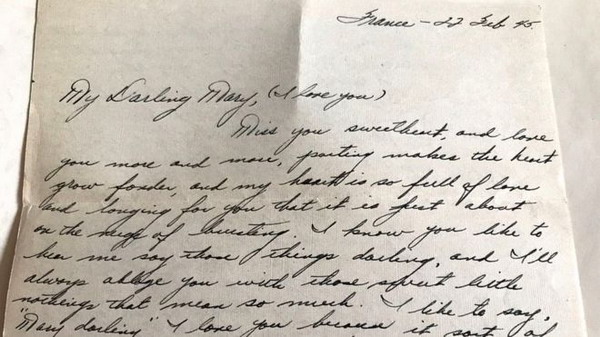 France - 22 Feb 45.
My Darling Mary, (I love you)
Miss you sweetheart, and love
you more and more, parting makes the heart
grow fonder, and my heart is so full of love
and longing for you that it is just about
on the verge of bursting. I know you like to
hear me say those things darling, and I'll
always oblige you with those sweet little
nothings that mean so much. I like to say,
"Mary darling" I love you because it sort of